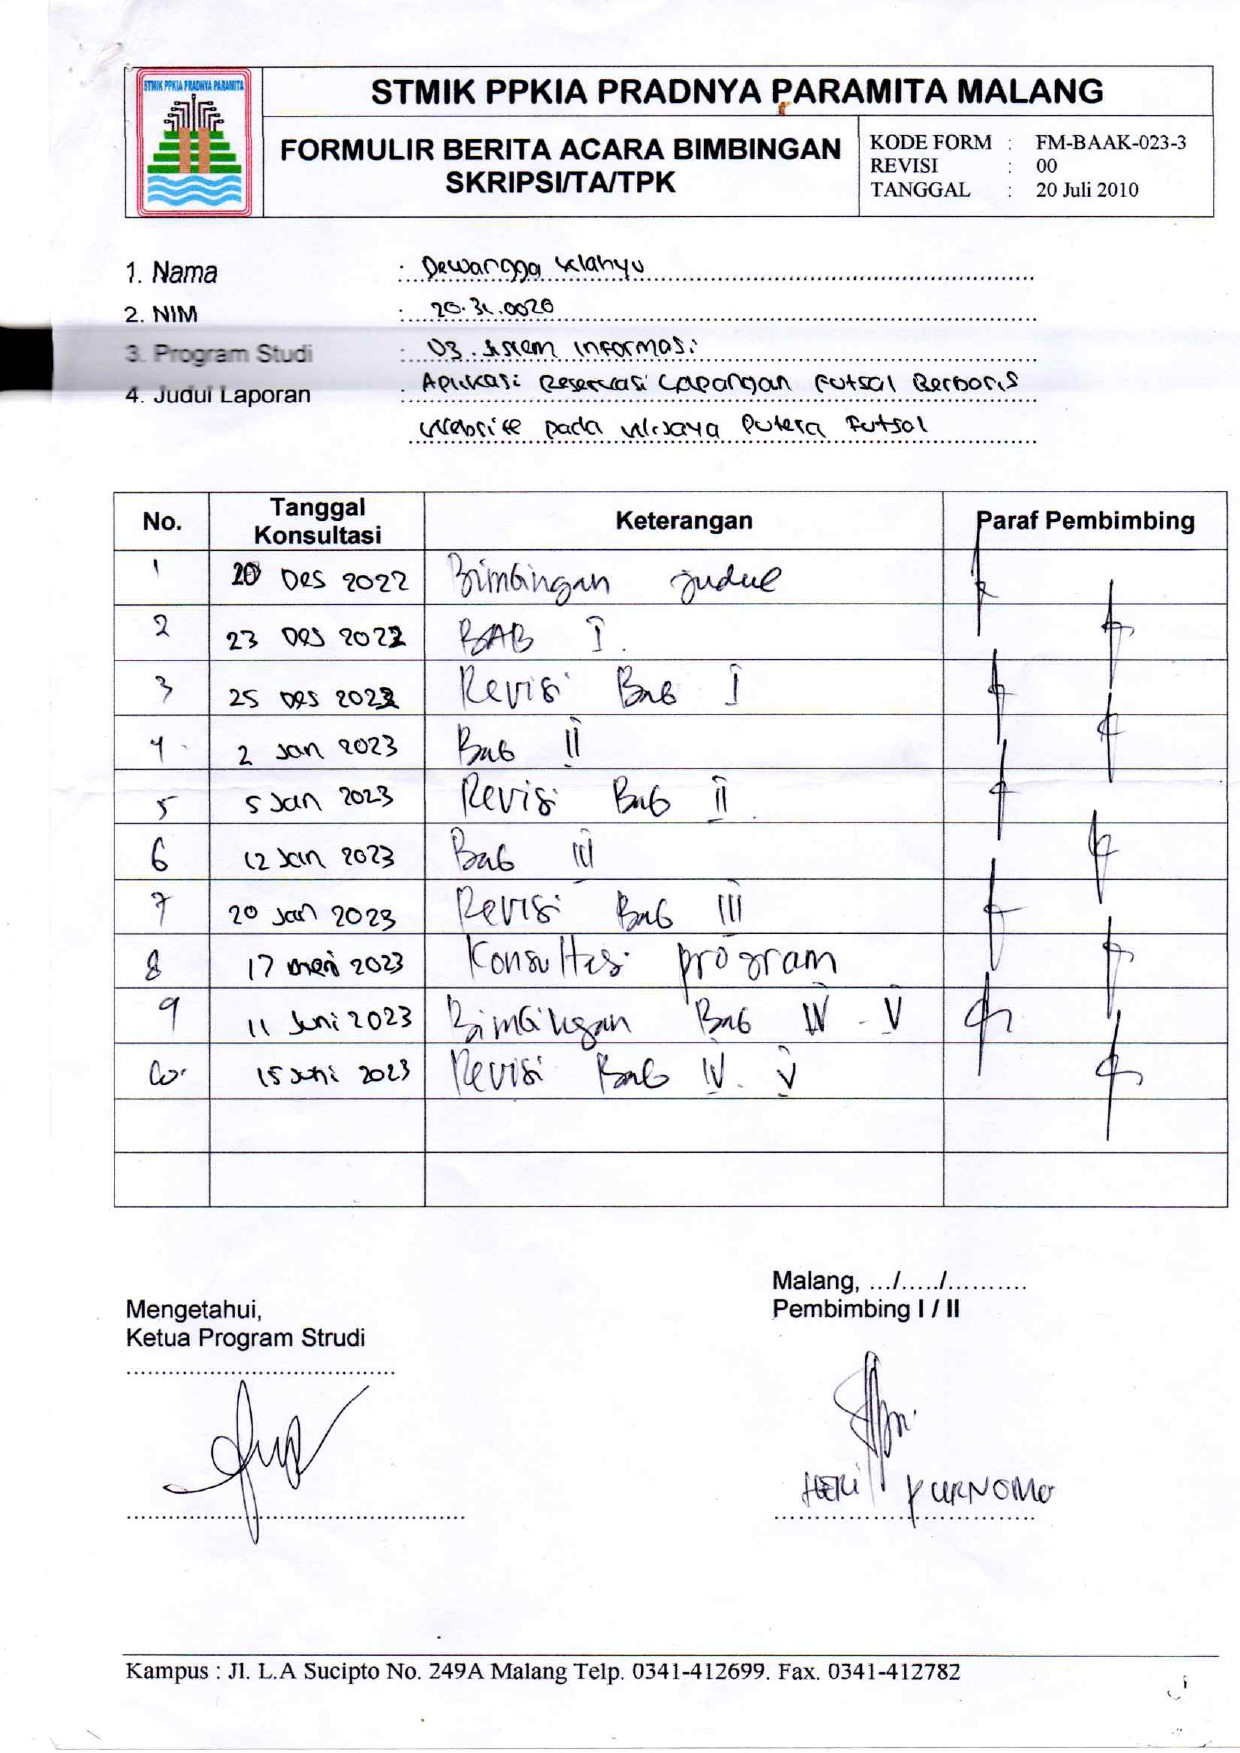 STMIK PPKIA PRADNYA PARAMITA
STMIK PPKIA PRADNYA PARAMITA MALANG
FORMULIR BERITA ACARA BIMBINGAN
SKRIPSI/TA/TPK
KODE FORM : FM-BAAK-023-3
REVISI : 00
TANGGAL : 20 Juli 2010
1. Nama : Dewangga Wahyu
2. NIM : 20.31.0020
3. Program Studi : D3. Sistem Informasi
4. Judul Laporan : Aplikasi Reservasi Lapangan Futsal Berbasis
Website pada Wijaya Putera Futsal
No. Tanggal Konsultasi Keterangan Paraf Pembimbing
1 20 Des 2022 Bimbingan judul
2 23 Des 2022 BAB I.
3 25 Des 2022 Revisi Bab I
4 2 Jan 2023 Bab II
5 5 Jan 2023 Revisi Bab II
6 12 Jan 2023 Bab III
7 20 Jan 2023 Revisi Bab III
8 17 mei 2023 Konsultasi program
9 11 Juni 2023 Bimbingan Bab IV - V
10. 15 Juni 2023 Revisi Bab IV. V
Malang, .../...../..........
Mengetahui,
Pembimbing I / II
Ketua Program Strudi
HERI PURNOMO
Kampus : Jl. L.A Sucipto No. 249A Malang Telp. 0341-412699. Fax. 0341-412782